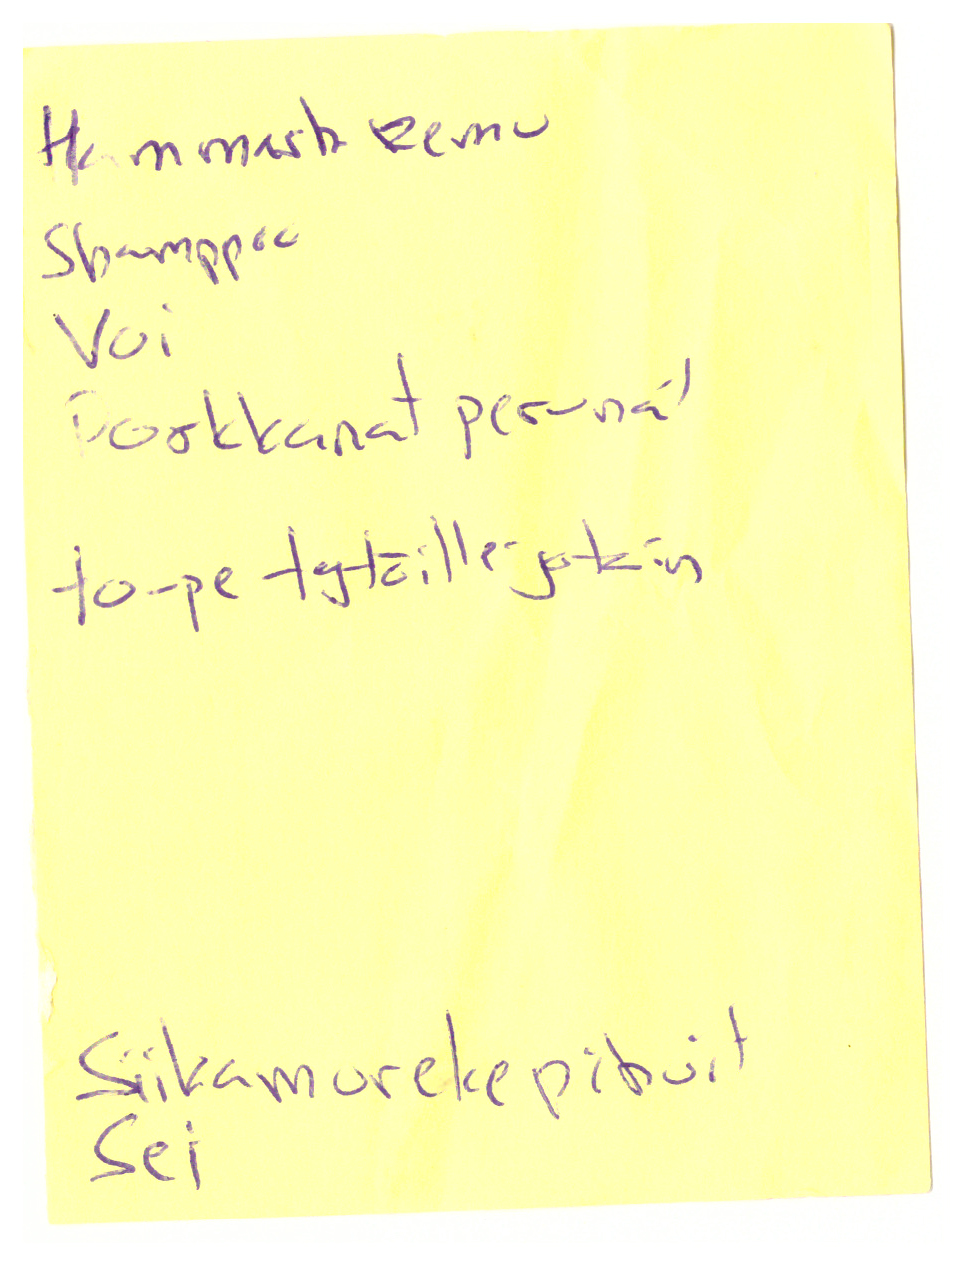 Hammash
Shamppoo
Voi
Porkkanat perunat
to-pe tytöille jotkin
Siikamureke pihvit
Sei